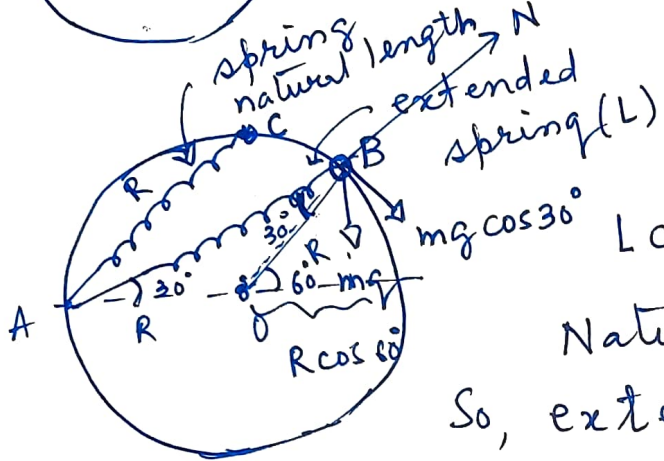 spring
natural length
N
extended
spring (L)
C
B
R
30°
R
mg cos30°
L c
30°
60°
mg
A
R
O
R cos 60°
Nat
So, exte